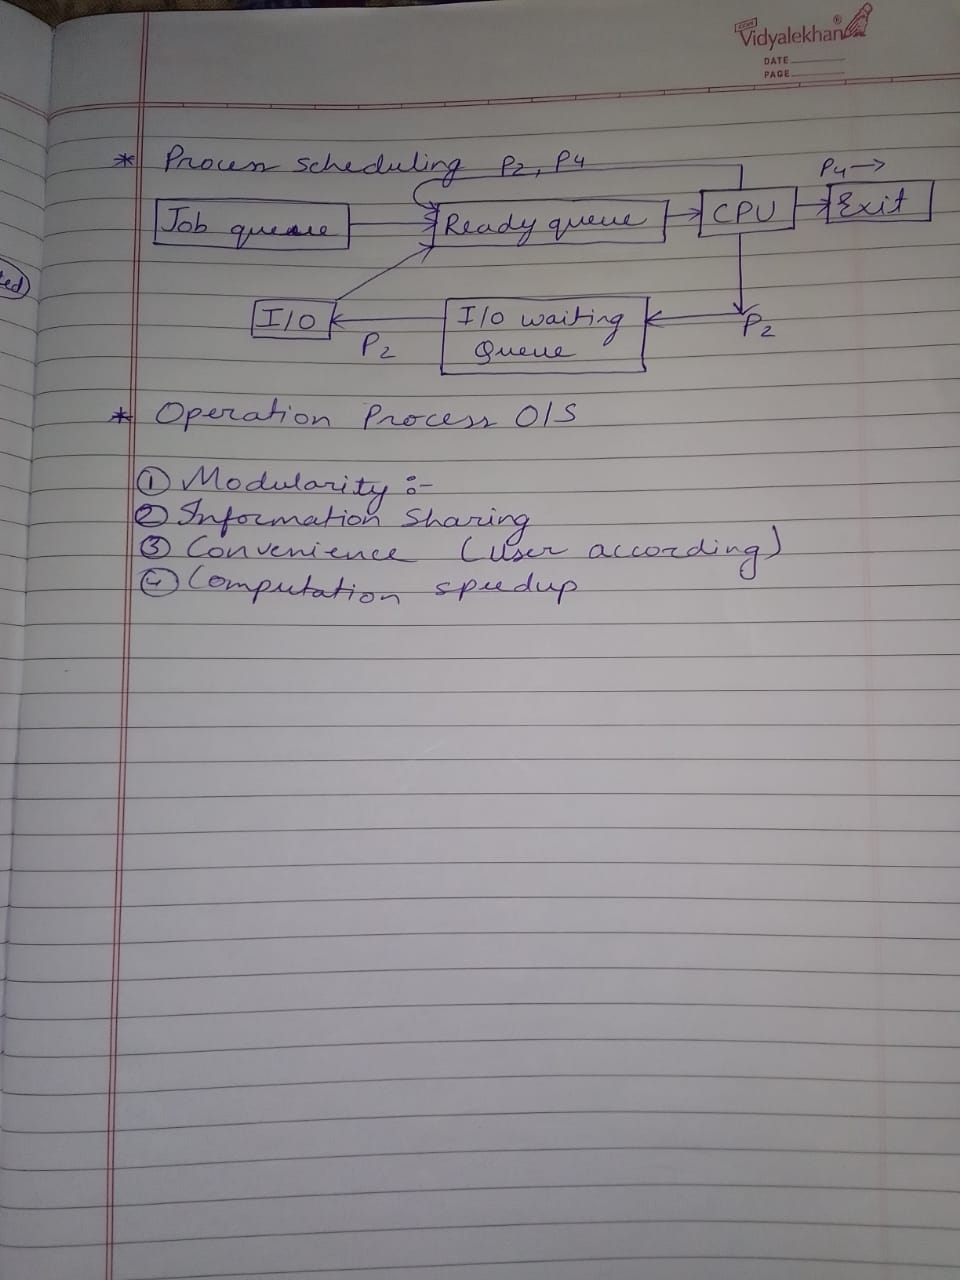 CCPR
Vidyalekhan®
DATE
PAGE
* Process scheduling P2, P4
P4 →
Job queue
Ready queue
CPU
Exit
I/O
P2
I/O waiting
Queue
P2
ted
* Operation Process O/S
① Modularity :-
② Information Sharing
③ Convenience (User according)
④ Computation speedup